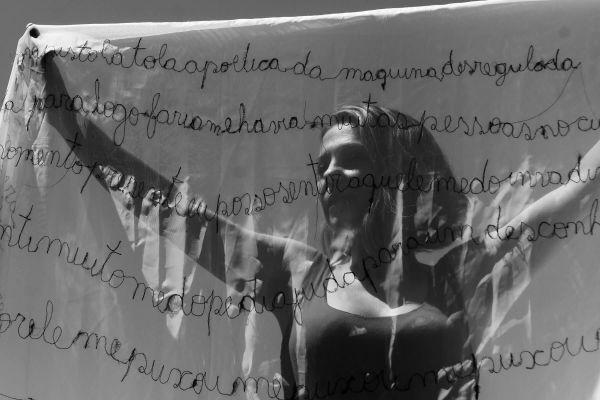 tola tola a poetica da maquina desregulada
para logo fariam e havia muitas pessoas no
momento presente eu posso sentir aquele medo invadi
nti muito medo pedia ajuda para um desconh
ele me puxou me puxou me puxou